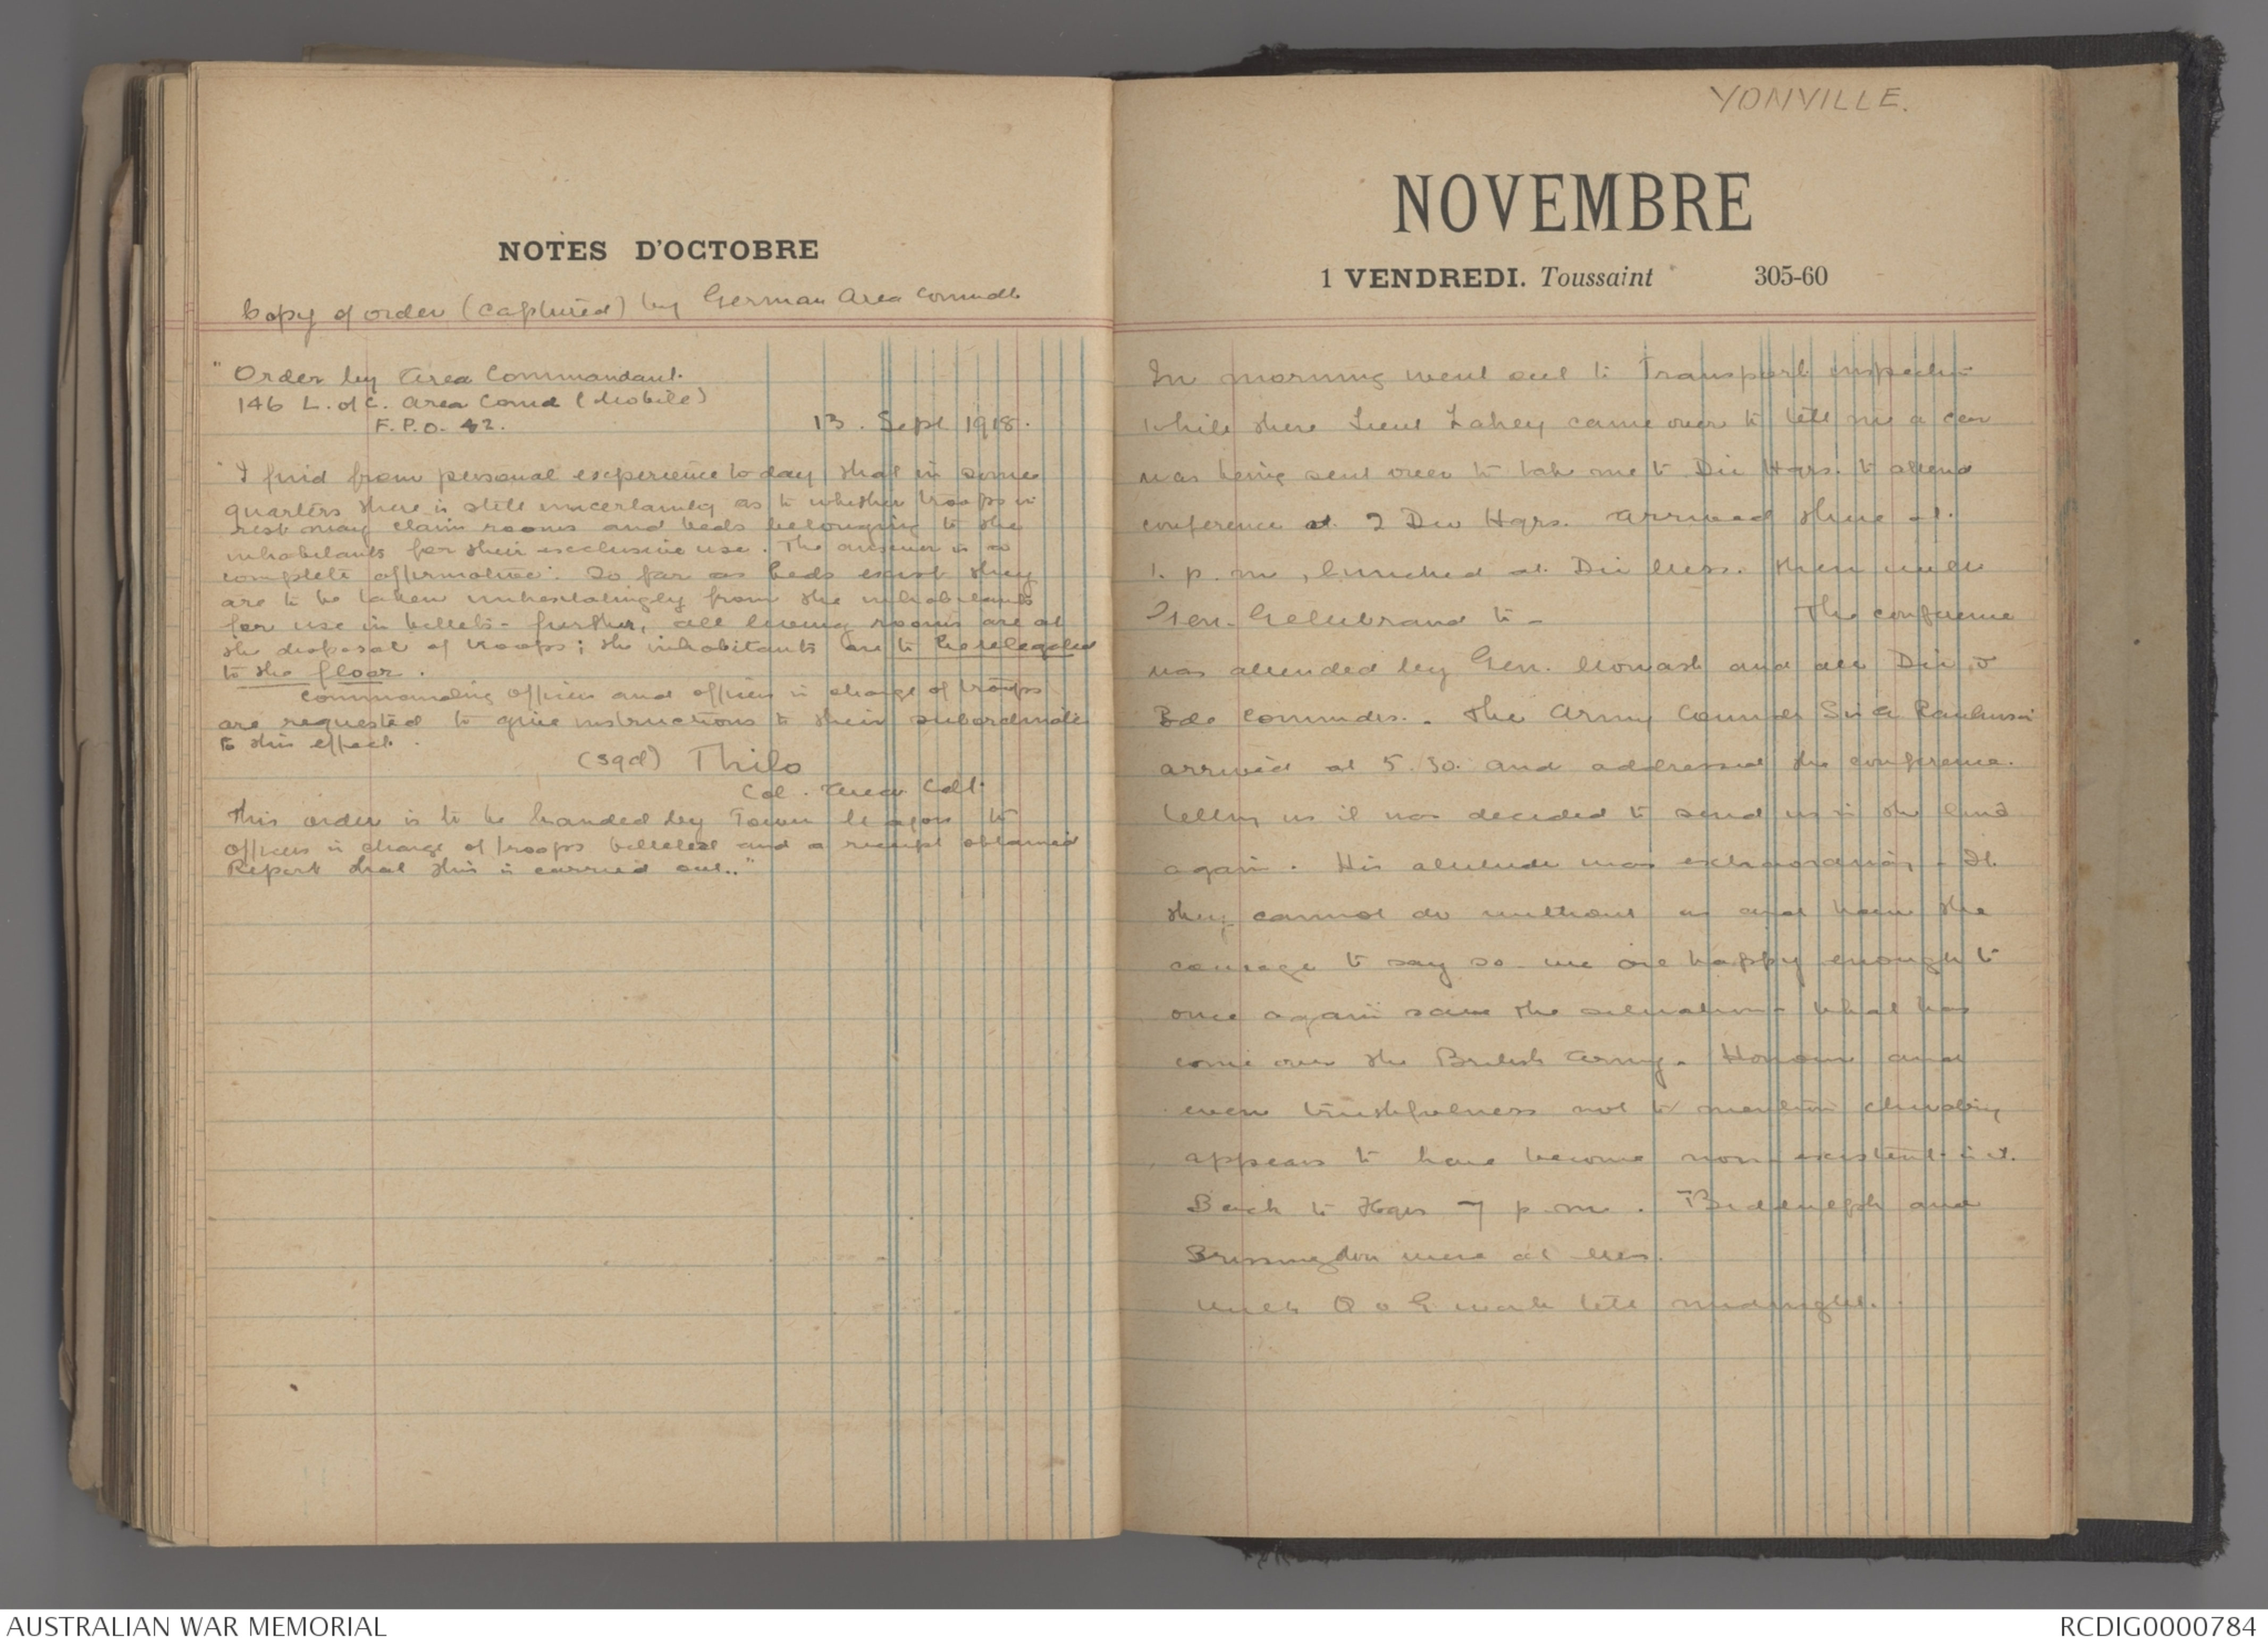 NOTES D'OCTOBRE
Copy of order (captured) by German Area Commdt
"Order by Area Commandant.
146 L. of C. Area Comd (Mobile)
F.P.O. 42. 13. Sept 1918.
"I find from personal experience today that in some
quarters there is still uncertainty as to whether troops in
rest may claim rooms and beds belonging to the
inhabitants for their exclusive use. The answer is a
complete affirmative. So far as beds exist they
are to be taken unhesitatingly from the inhabitants
for use in billets - further, all living rooms are at
the disposal of troops; the inhabitants are to be relegated
to the floor.
Commanding Officers and officers in charge of troops
are requested to give instructions to their subordinates
to this effect.
(sgd) Thilo
Col. Area Cdt.
This order is to be handed by Town Majors to
Officers in charge of troops billeted and a receipt obtained
Report that this is carried out.."
YONVILLE.
NOVEMBRE
1 VENDREDI. Toussaint 305-60
In morning went out to Transport inspection
while there Lieut Lahey came over to tell me a car
was being sent over to take me to Div Hqrs. to attend
conference at 2 Div Hqrs. Arrived there at
1. p.m, lunched at Div Mess. Then with
Gen. Gellibrand to - The conference
was attended by Gen. Monash and all Div &
Bde Commdrs. The Army Commdr Sir Rawlinson
arrived at 5.30. and addressed the conference.
telling us it was decided to send us in the line
again. His attitude was extraordinary. If
they cannot do without us and have the
courage to say so we are happy enough to
once again save the situation. What has
come over the British Army. Honour and
even truthfulness not to mention chivalry
appears to have become non-existent in it.
Back to Hqrs 7 p.m. and
were at Mess.
Much Q & G work till midnight.
AUSTRALIAN WAR MEMORIAL
RCDIG0000784